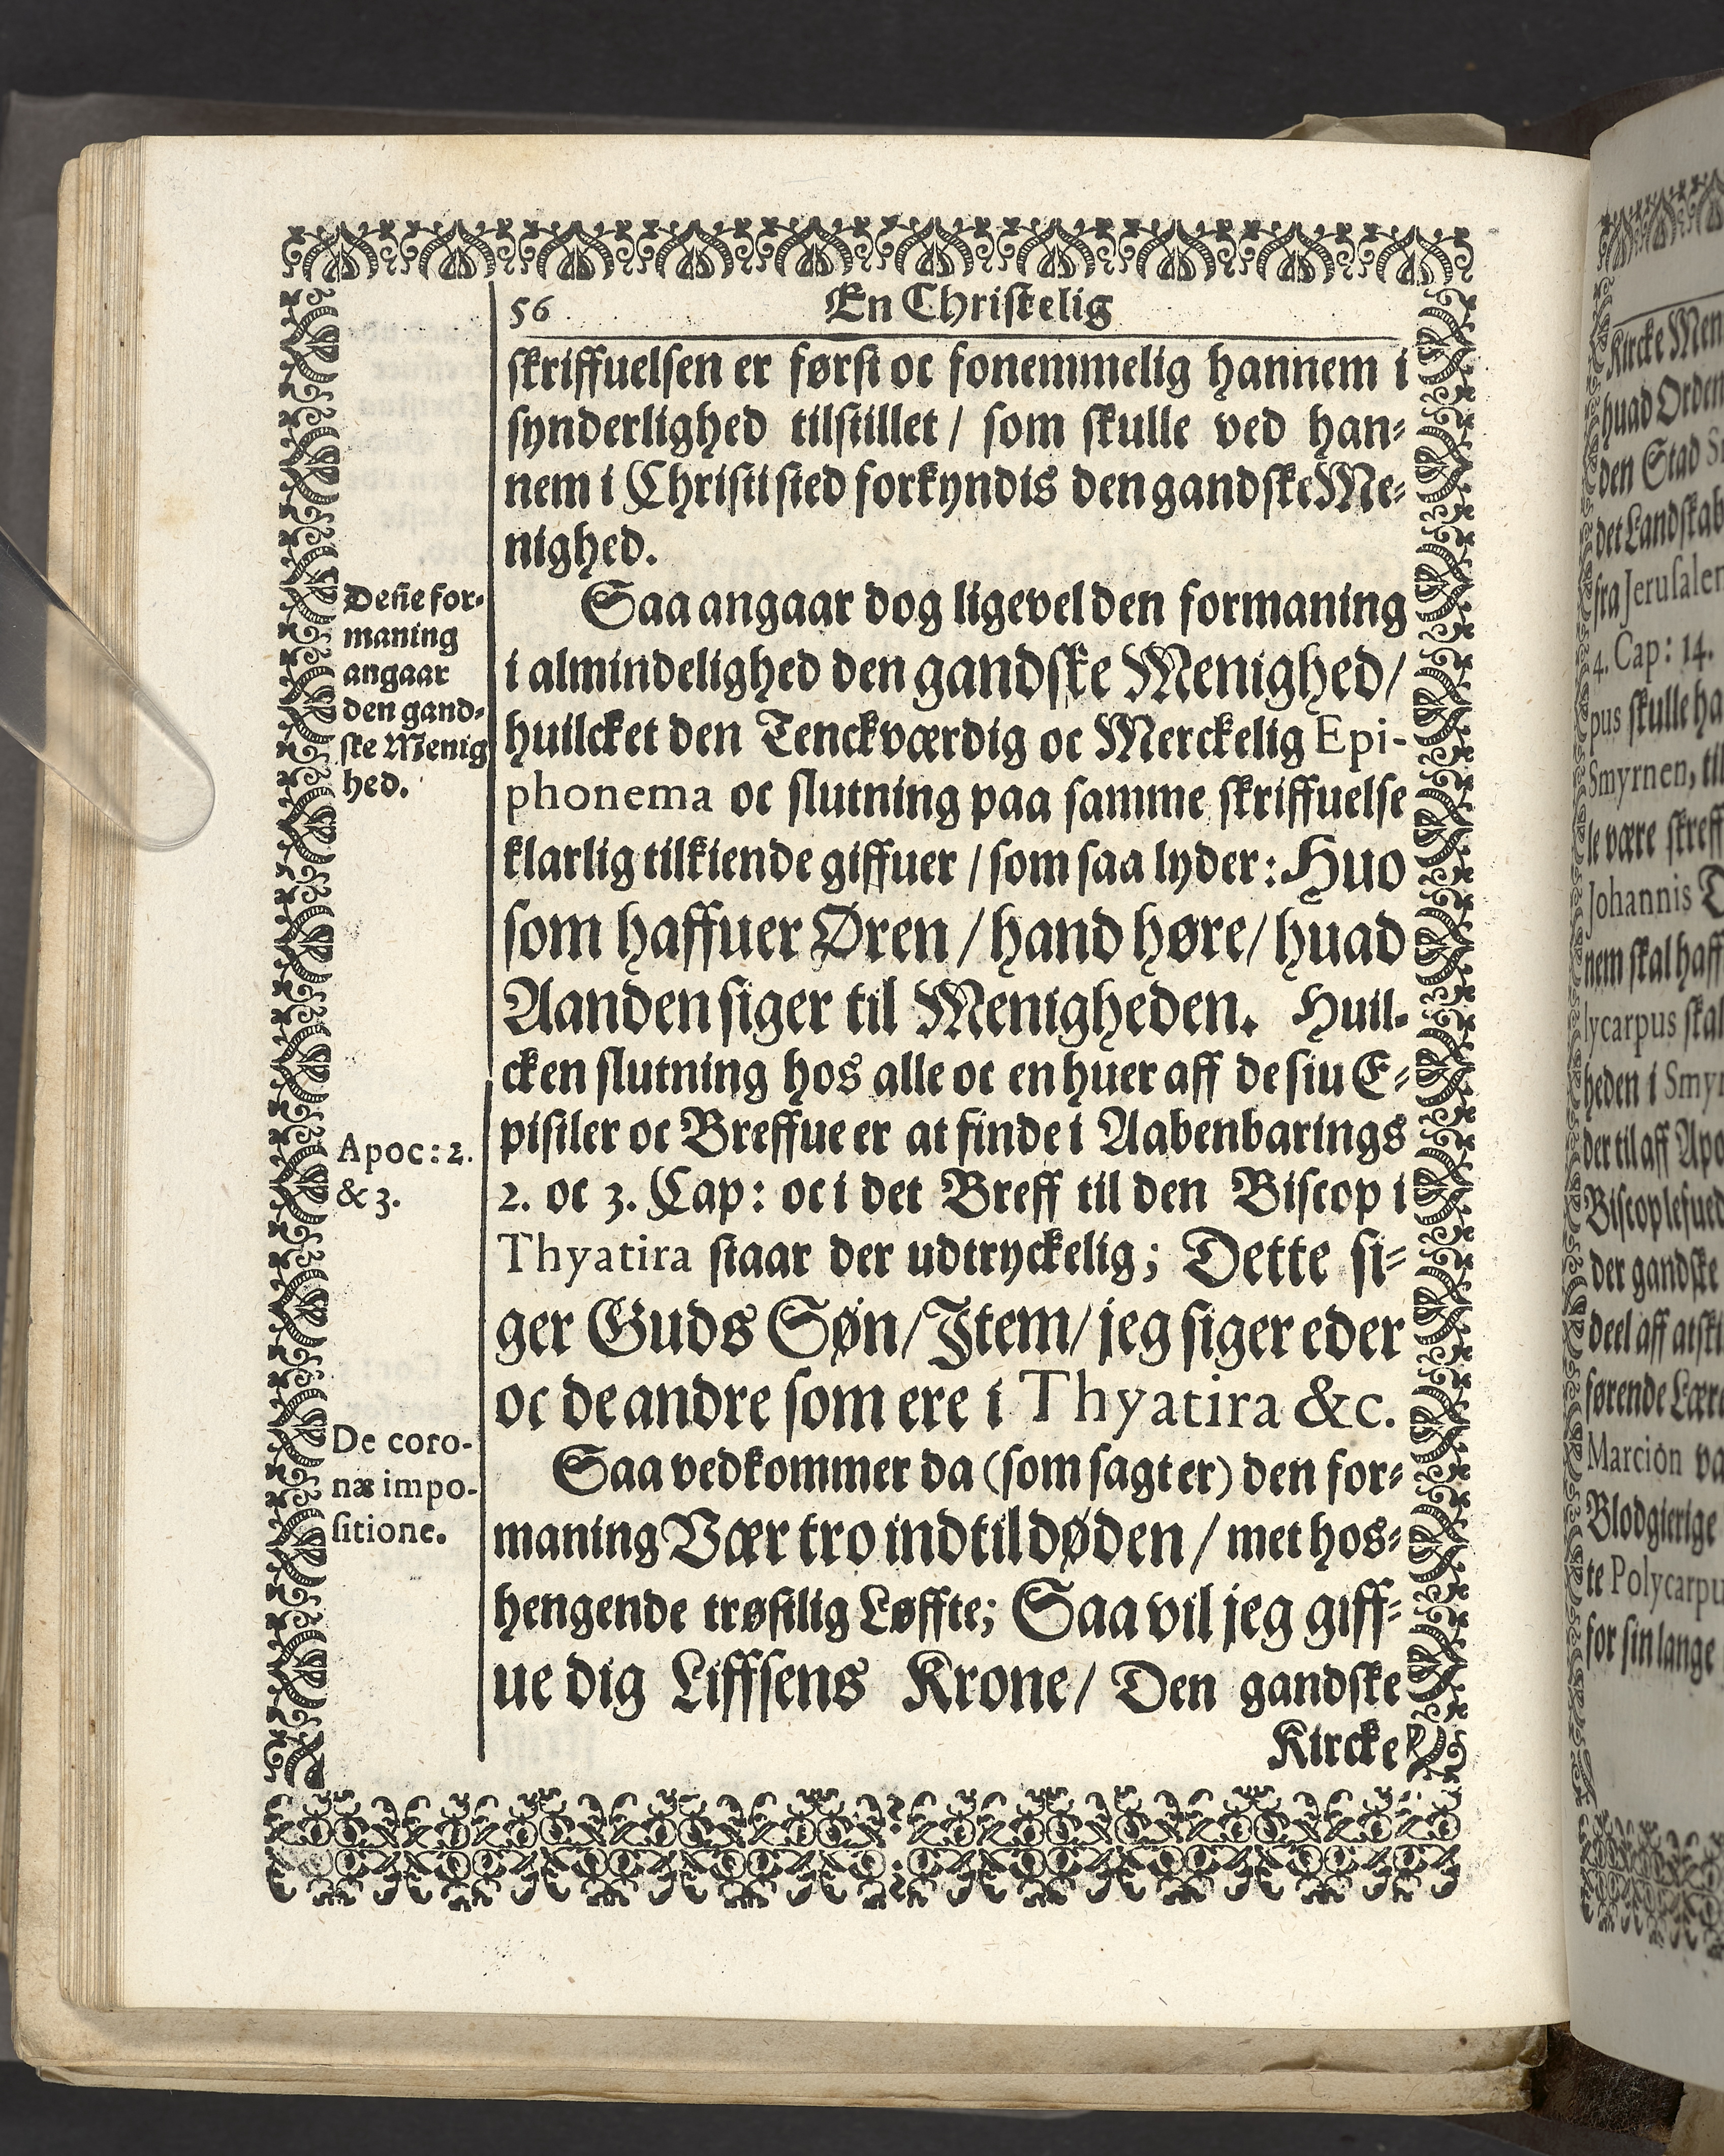 56 En Christelig
skriffuelsen er først oc fonemmelig hannem i
synderlighed tilstillet / som skulle ved han-
nem i Christi sted forkyndis den gandske Me-
nighed.
Deñe for-
maning
angaar
den gand-
ske Menig
hed.
Saa angaar dog ligevel den formaning
i almindelighed den gandske Menighed/
huilcket den Tenckværdig oc Merckelig Epi-
phonema oc slutning paa samme skriffuelse
klarlig tilkiende giffuer / som saa lyder: Huo
som haffuer Øren / hand høre/ huad
Aanden siger til Menigheden. Huil-
cken slutning hos alle oc en huer aff de siu E-
pistler oc Breffue er at finde i Aabenbarings
Apoc: 2.
& 3.
2. oc 3. Cap: oc i det Breff til den Biscop i
Thyatira staar der udtryckelig; Dette si-
ger Guds Søn/ Item/ jeg siger eder
oc de andre som ere i Thyatira &c.
De coro-
næ impo-
sitione.
Saa vedkommer da (som sagt er) den for-
maning Vær tro indtil døden / met hos-
hengende trøstlig Løffte; Saa vil jeg giff-
ue dig Liffsens Krone/ Den gandske
Kircke
Kircke Men
huad Orden
den Stad
det Landskab
fra Jerusalem
4. Cap: 14.
pus skulle
Smyrnen, til
le være
Johannis
nem skal
lycarpus
heden i
der til aff
Biscop
der gandske
deel aff
førende
Marcion
Blodgierige
te
for sin lange